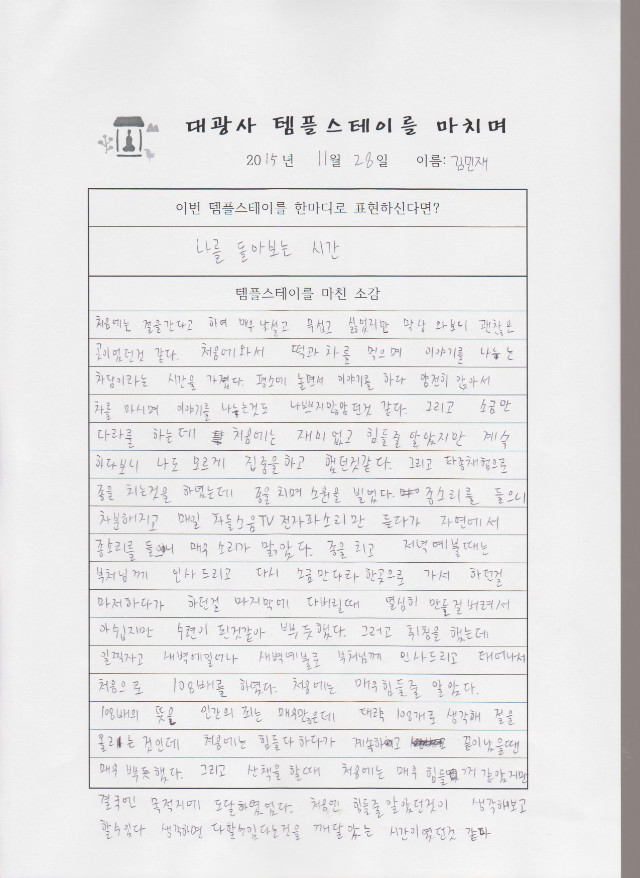 대광사 템플스테이를 마치며
2015년 11월 28일 이름: 김민재
이번 템플스테이를 한마디로 표현하신다면?
나를 돌아보는 시간
템플스테이를 마친 소감
처음에는 절을간다고 하여 매우 낯설고 무섭고 싫었지만 막상 와보니 괜찮은
곳이었던것 같다. 처음에와서 떡과 차를 먹으며 이야기를 나누는
차담이라는 시간을 가졌다. 평소에 놀면서 이야기를 하다 얌전히 앉아서
차를 마시며 이야기를 나눈것도 나쁘지만않았던것 같다. 그리고 소금만
다라를 하는데 처음에는 재미없고 힘들줄알았지만 계속
하다보니 나도 모르게 집중을하고 했던것같다. 그리고 타종체험으로
종을 치는것을 하였는데 종을 치며 소원을 빌었다. 종소리를 들으니
차분해지고 매일 차들소음TV전자파소리만 듣다가 자연에서
종소리를 들으니 매우 소리가 맑았다. 종을 치고 저녁예불때는
부처님께 인사드리고 다시 소금만다라 한곳으로 가서 하던걸
마저하다가 하던걸 마지막에 다버릴때 열심히 만들걸버려서
아쉽지만 수련이 된것같아 뿌듯했다. 그러고 취침을 했는데
일찍자고 새벽에일어나 새벽예불로 부처님께 인사드리고 태어나서
처음으로 108배를 하였다. 처음에는 매우힘들줄 알았다.
108배의 뜻을 인간의 죄는 매우많은데 대략 108개로 생각해 절을
올리는 것인데 처음에는 힘들다하다가 계속하고 끝이났을땐
매우 뿌듯했다. 그리고 산책을 할때 처음에는 매우 힘들거 같았지만
결국엔 목적지에 도달하였었다. 처음엔 힘들줄알았던것이 생각해보고
할수있다 생각하면 다할수있다는것을 깨달았는 시간이였던것 같다